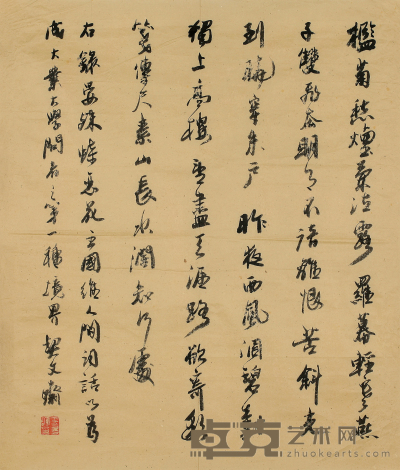 檻菊愁煙蘭泣露羅幕輕寒燕
子雙飛去明月不諳離恨苦斜光
到曉穿朱戶昨夜西風凋碧樹
獨上高樓望盡天涯路欲寄彩
箋尺素山長水闊知何處
右錄晏殊蝶戀花王國維人間詞話以為
成大業大學問者之第一種境界
卓克艺术网
www.zhuokearts.com